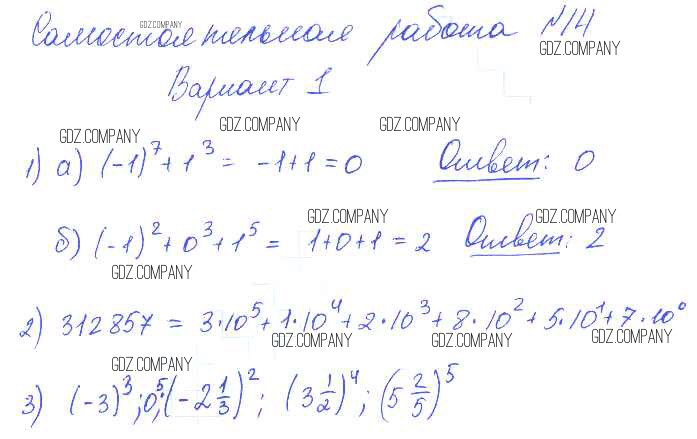 Самостоятельная работа №14
Вариант 1
1) а) (-1)^7 + 1^3 = -1+1 = 0 Ответ: 0
б) (-1)^2 + 0^3 + 1^5 = 1+0+1 = 2 Ответ: 2
2) 312857 = 3·10^5 + 1·10^4 + 2·10^3 + 8·10^2 + 5·10^1 + 7·10^0
3) (-3)^3; 0^5; (-2 1/3)^2; (3 1/2)^4; (5 2/5)^5
GDZ.COMPANY
GDZ.COMPANY
GDZ.COMPANY
GDZ.COMPANY
GDZ.COMPANY
GDZ.COMPANY
GDZ.COMPANY
GDZ.COMPANY
GDZ.COMPANY
GDZ.COMPANY
GDZ.COMPANY
GDZ.COMPANY